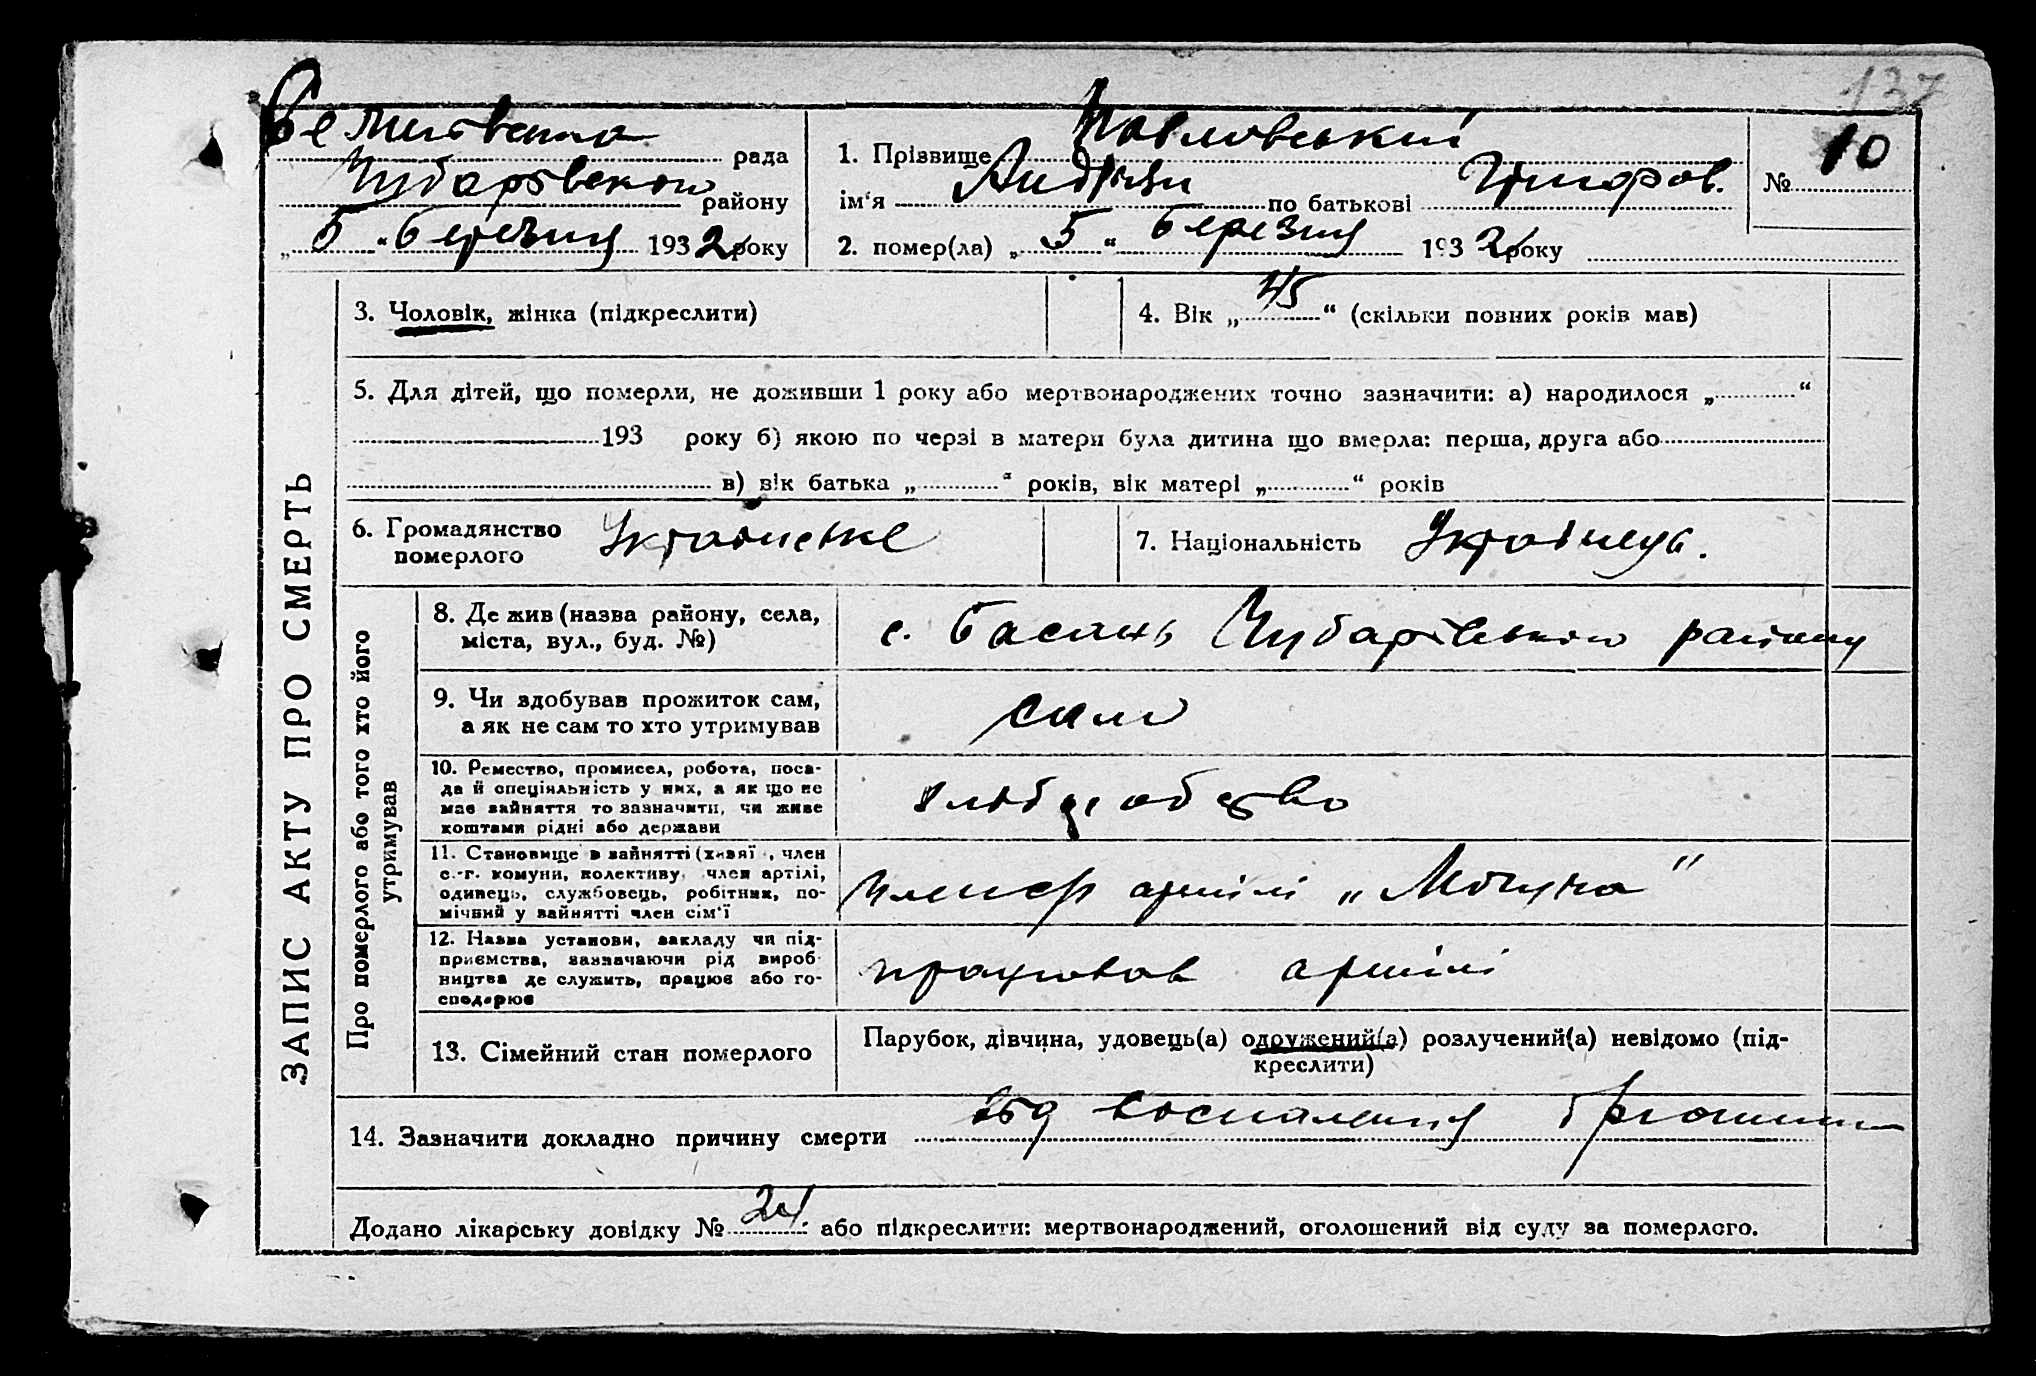 137
рада
Чубарівського району
„ 5 “ березня 1932 року
1. Прізвище Павловський
ім‘я Андрій по батькові Григоров.
№ 10
2. помер(ла) „ 5 “ березня 1932 року
ЗАПИС АКТУ ПРО СМЕРТЬ
3. Чоловік, жінка (підкреслити)
4. Вік „ 45 “ (скільки повних років мав)
5. Для дітей, що померли, не доживши 1 року або мертвонароджених точно зазначити: а) народилося „ “
193 року б) якою по черзі в матери була дитина що вмерла: перша, друга або
в) вік батька „ “ років, вік матері „ “ років
6. Громадянство
померлого
Українське
7. Національність Українець.
Про померлого або того хто його
утримував
8. Де жив (назва району, села,
міста, вул., буд. №)
с. Басань Чубарівського району
9. Чи здобував прожиток сам,
а як не сам то хто утримував
сам
10. Ремество, промисел, робота, поса-
да й спеціяльність у них, а як що не
має зайняття то зазначити, чи живе
коштами рідні або держави
хліборобство
11. Становище в зайнятті (хазяї , член
с.-г. комуни, колективу, член артілі,
одинець, службовець, робітник, по-
мічний у зайнятті член сім‘ї
член артілі „
12. Назва установи, закладу чи під-
приємства, зазначаючи рід вироб-
ництва де служить, працює або го-
сподарює
працював артілі
13. Сімейний стан померлого
Парубок, дівчина, удовець(а) одружений(а) розлучений(а) невідомо (під-
креслити)
14. Зазначити докладно причину смерти від воспаления
Додано лікарську довідку № 24. або підкреслити: мертвонароджений, оголошений від суду за померлого.